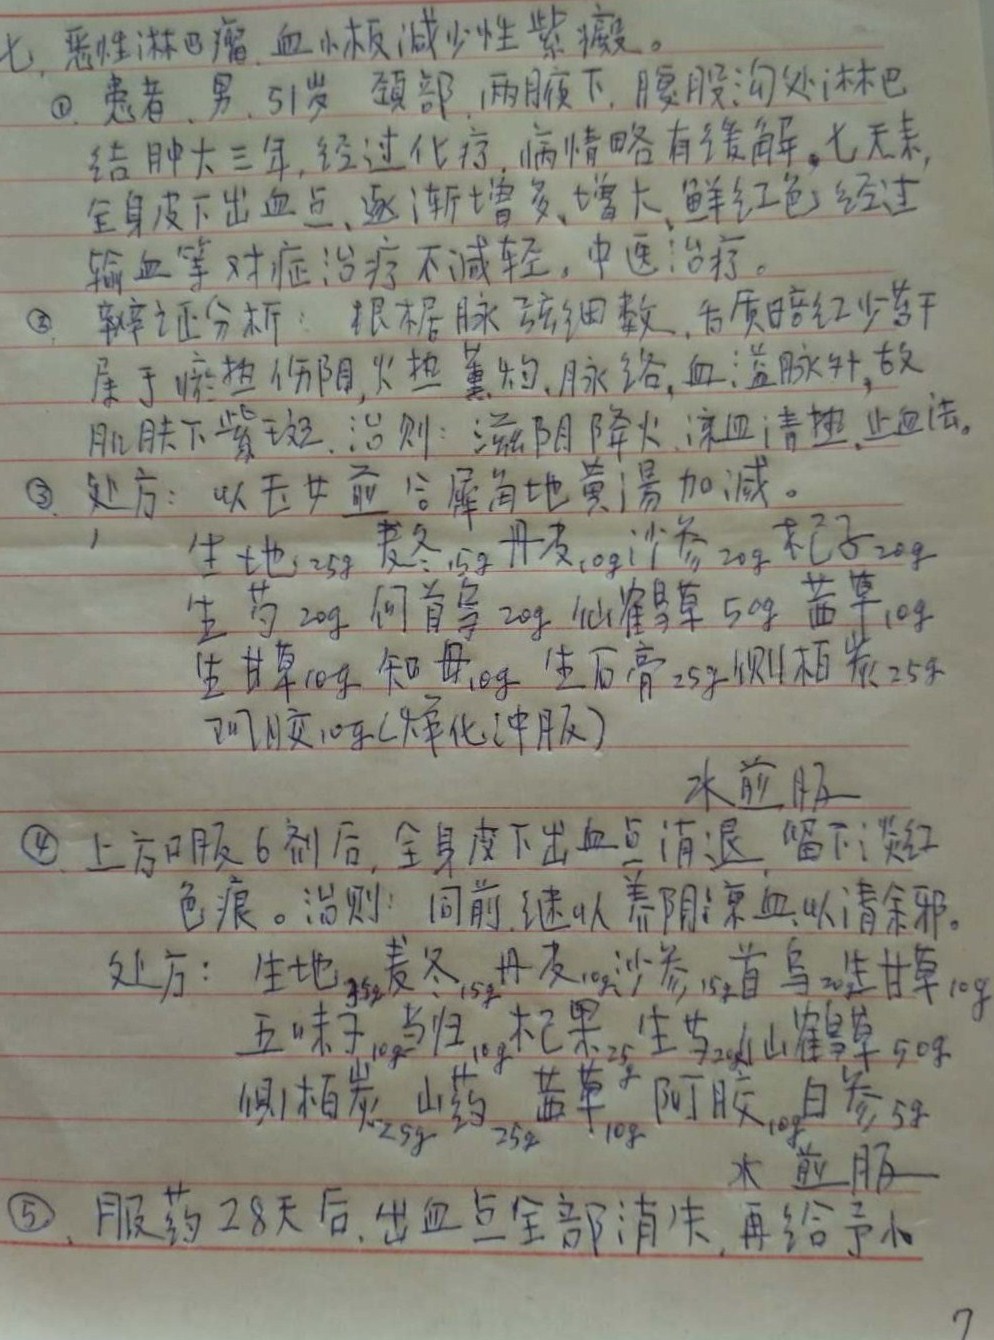 七、恶性淋巴瘤、血小板减少性紫癜。
①、患者、男、51岁 颈部、两腋下、腹股沟处淋巴
结肿大三年，经过化疗，病情略有缓解。七天来，
全身皮下出血点、逐渐增多、增大、鲜红色；经过
输血等对症治疗不减轻，中医治疗。
②、辨证分析：根据脉弦细数、舌质暗红少苔干
属于瘀热伤阴，火热薰灼、脉络，血溢脉外，故
肌肤下紫斑、治则：滋阴降火、凉血清热、止血法。
③、处方：以玉女煎合犀角地黄湯加减。
生地25g 麦冬15g 丹皮10g 沙参20g 杞子20g
生芍20g 何首乌20g 仙鹤草50g 茜草10g
生甘草10g 知母10g 生石膏25g 侧柏炭25g
阿胶10g（烊化冲服）
水煎服
④、上方口服6剂后，全身皮下出血点消退，留下淡红
色痕。治则：同前，继以养阴凉血、以清余邪。
处方：生地 麦冬15g 丹皮10g 沙参15g 首乌20g 生甘草10g
五味子10g 当归10g 杞果25g 生芍20g 仙鹤草50g
侧柏炭25g 山药25g 茜草10g 阿胶10g 白参5g
水煎服
⑤、服药28天后，出血点全部消失，再给予
7